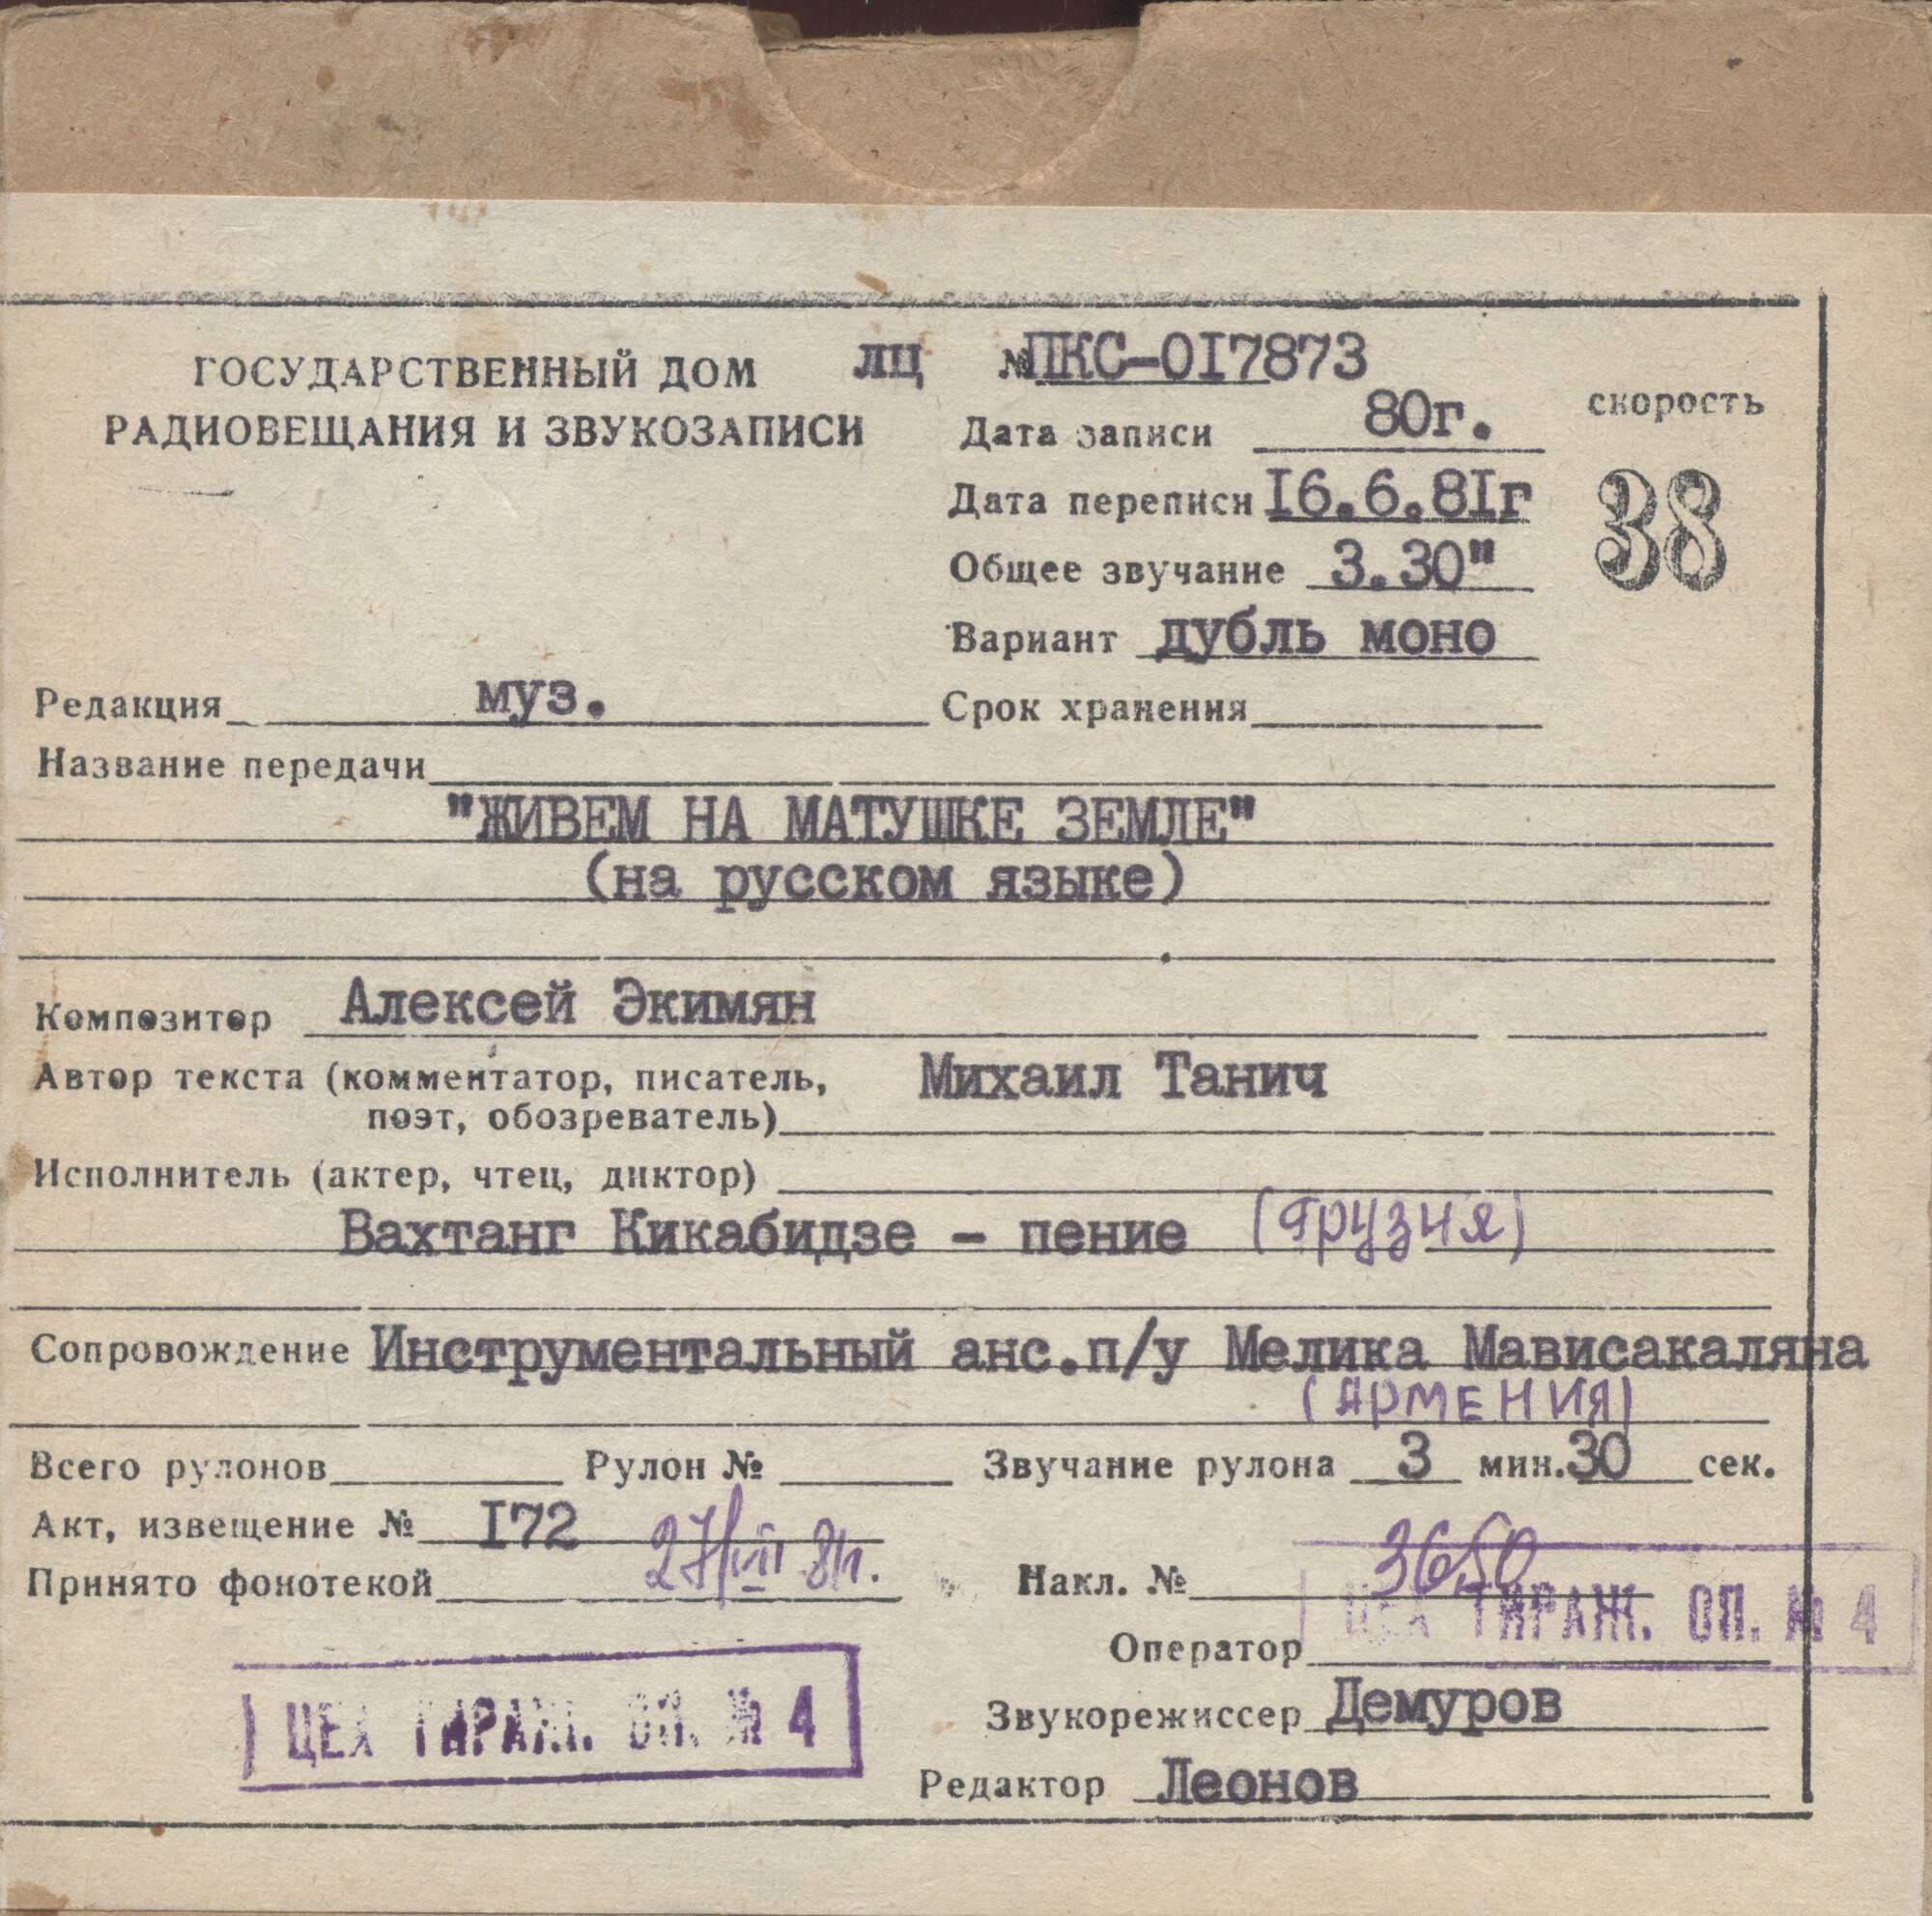 ГОСУДАРСТВЕННЫЙ ДОМ
РАДИОВЕЩАНИЯ И ЗВУКОЗАПИСИ
ЛЦ № ПКС-017873
Дата записи 80г.
Дата переписи 16.6.81г
Общее звучание 3.30"
Вариант дубль моно
скорость
38
Редакция муз. Срок хранения
Название передачи
"ЖИВЕМ НА МАТУШКЕ ЗЕМЛЕ"
(на русском языке)
Композитор Алексей Экимян
Автор текста (комментатор, писатель, Михаил Танич
поэт, обозреватель)
Исполнитель (актер, чтец, диктор)
Вахтанг Кикабидзе - пение (Грузия)
Сопровождение Инструментальный анс.п/у Мелика Мависакаляна
(АРМЕНИЯ)
Всего рулонов Рулон № Звучание рулона 3 мин. 30 сек.
Акт, извещение № 172
Принято фонотекой 27/VII 81г. Накл. № 3650
ЦЕХ ТИРАЖ. ОП. № 4
Оператор
Звукорежиссер Демуров
ЦЕХ ТИРАЖ. ОП. № 4
Редактор Леонов